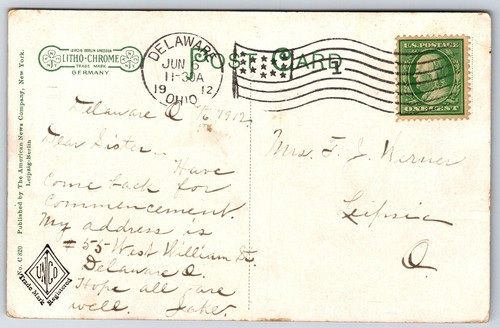 LEIPZIG BERLIN DRESDEN
LITHO-CHROME
TRADE MARK
GERMANY
DELAWARE
JUN 6
11-30A
1912
OHIO
POST CARD
1
U.S. POSTAGE
ONE CENT
Delaware O 6/6 1912
Dear Sister.
Have
come back for
Commencement.
My address is
# 55 West William St.
Delaware O.
Hope all are
well. Jake.
Mrs. F. J. Werner
Leipsic
O.
No. C 820 Published by The American News Company, New York.
Leipzig-Berlin
UNCO
Trade Mark Registered